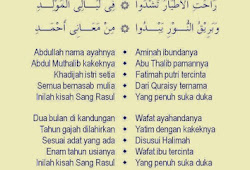 رَاحَتِ الْأَطْيَارُ تَشْدُوا ۞ فِى لَيَالِى الْمَوْلِدِ
وَبَرِيْقُ النُّوْرِ يَبْدُوا ۞ مِنْ مَعَانِى أَحْمَدِ
Abdullah nama ayahnya ◆ Aminah ibundanya
Abdul Muthalib kakeknya ◆ Abu Thalib pamannya
Khadijah istri setia ◆ Fatimah putri tercinta
Semua bernasab mulia ◆ Dari Quraisy ternama
Inilah kisah Sang Rasul ◆ Yang penuh suka duka
Dua bulan di kandungan ◆ Wafat ayahandanya
Tahun gajah dilahirkan ◆ Yatim dengan kakeknya
Sesuai adat yang ada ◆ Disusui Halimah
Enam tahun usianya ◆ Wafat ibu tercinta
Inilah kisah Sang Rasul ◆ Yang penuh suka duka